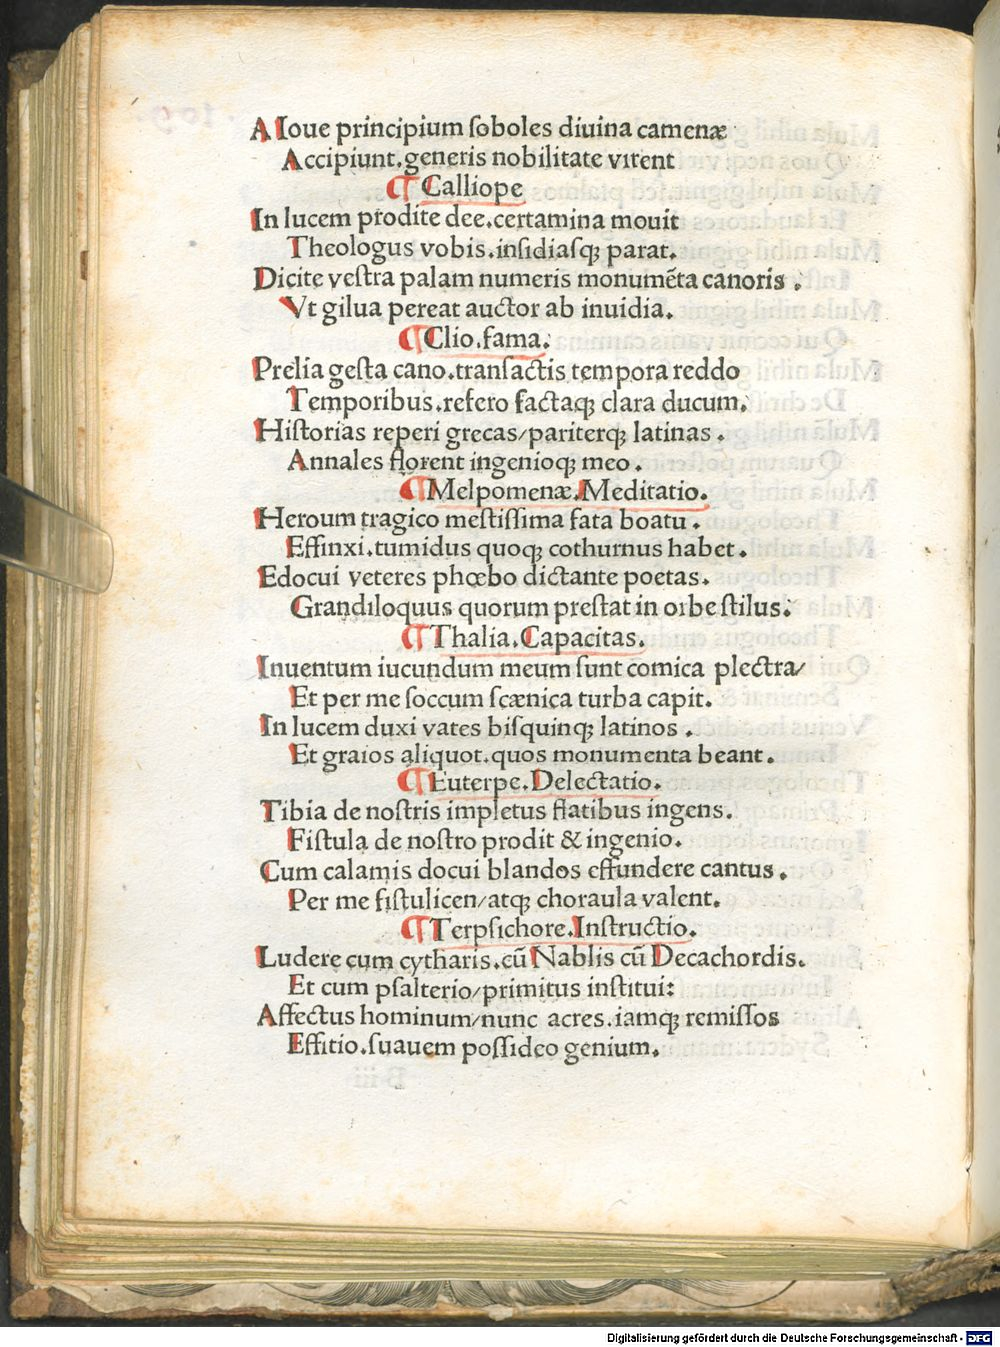 A Ioue principium ſoboles diuina camenæ
Accipiunt.generis nobilitate virent
¶ Calliope
In lucem prodite dee.certamina mouit
Theologus vobis.inſidiaſqꝫ parat.
Dicite veſtra palam numeris monumēta canoris .
Vt gilua pereat auctor ab inuidia.
¶ Clio.fama.
Prelia geſta cano.tranſactis tempora reddo
Temporibus.refero factaqꝫ clara ducum.
Hiſtorias reperi grecas/pariterqꝫ latinas .
Annales florent ingenioqꝫ meo .
¶ Melpomenæ.Meditatio.
Heroum tragico meſtiſſima fata boatu .
Effinxi.tumidus quoqꝫ cothurnus habet .
Edocui veteres phœbo dictante poetas.
Grandiloquus quorum preſtat in orbe ſtilus.
¶ Thalia.Capacitas.
Inuentum iucundum meum ſunt comica plectra/
Et per me ſoccum ſcænica turba capit.
In lucem duxi vates biſquinqꝫ latinos .
Et graios aliquot.quos monumenta beant .
¶ Euterpe.Delectatio.
Tibia de noſtris impletus flatibus ingens.
Fiſtula de noſtro prodit & ingenio.
Cum calamis docui blandos effundere cantus .
Per me fiſtulicen/atqꝫ choraula valent.
¶ Terpſichore.Inſtructio.
Ludere cum cytharis.cū Nablis cū Decachordis.
Et cum pſalterio/primitus inſtitui:
Affectus hominum/nunc acres.iamqꝫ remiſſos
Effitio.ſuauem poſſideo genium.
Digitalisierung gefördert durch die Deutsche Forschungsgemeinschaft - DFG